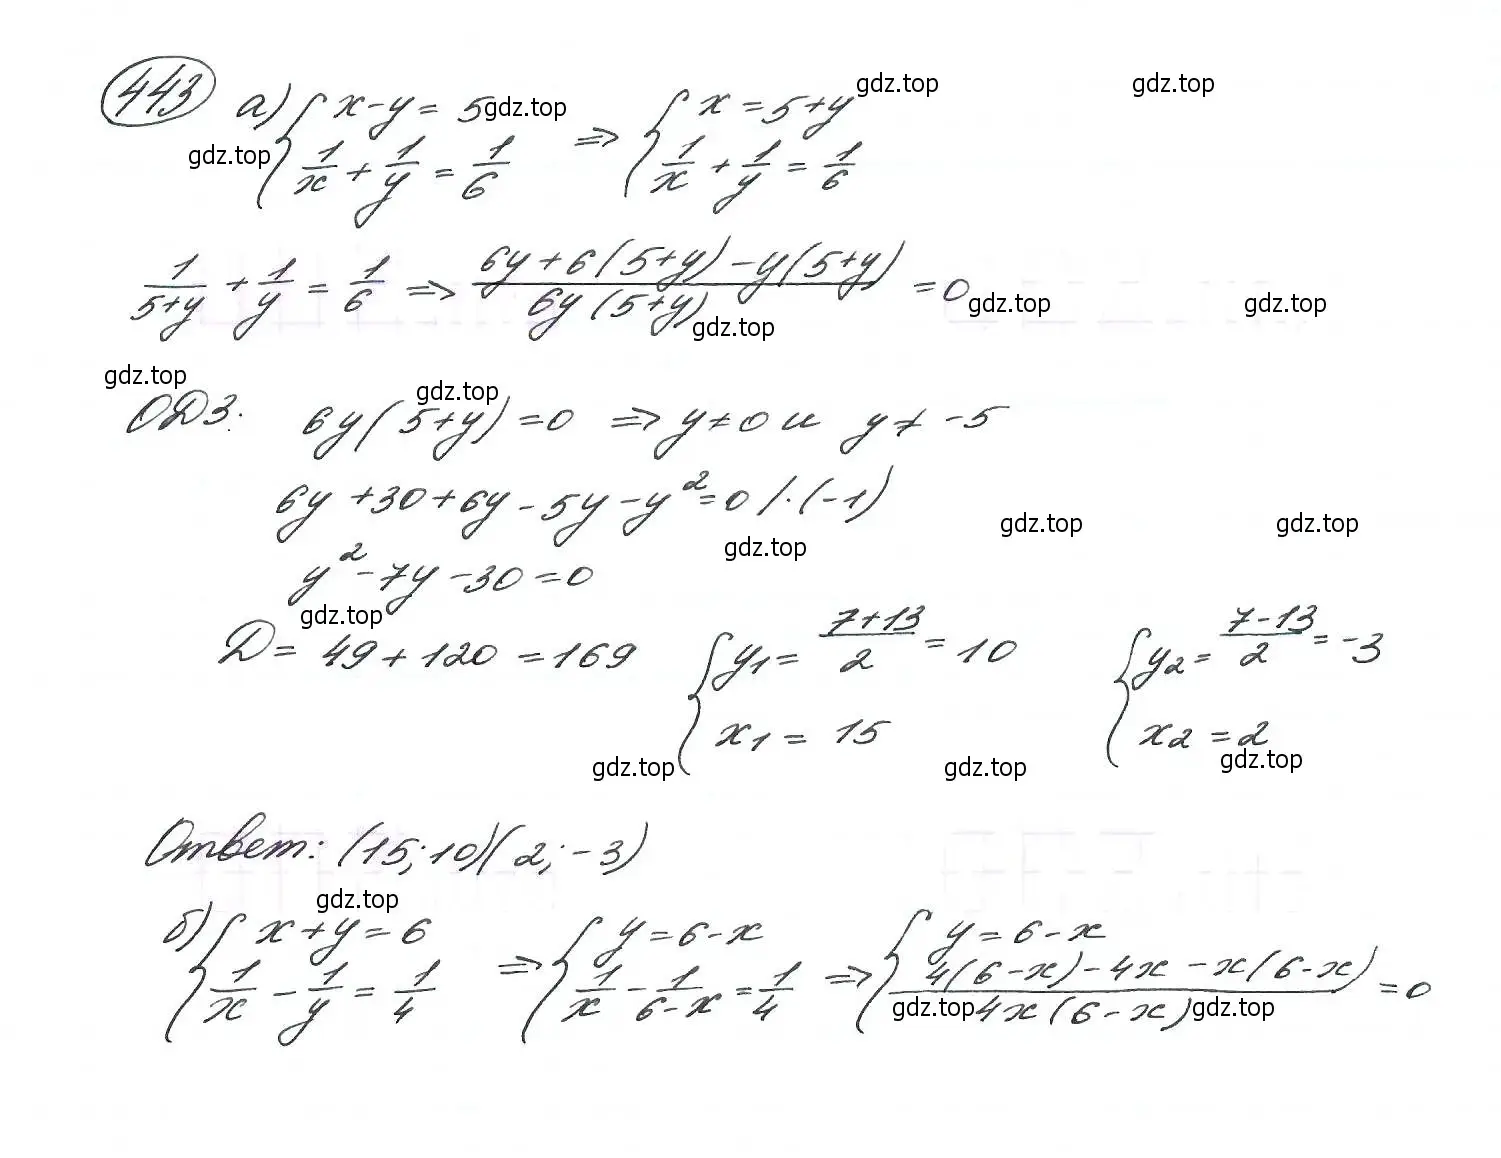 443 а) { x - y = 5 ; 1/x + 1/y = 1/6 ⇒ { x = 5 + y ; 1/x + 1/y = 1/6
gdz.top gdz.top gdz.top gdz.top
1/(5+y) + 1/y = 1/6 ⇒ (6y + 6(5+y) - y(5+y)) / (6y(5+y)) = 0
gdz.top gdz.top gdz.top
gdz.top gdz.top
ОДЗ: 6y(5+y) = 0 ⇒ y ≠ 0 и y ≠ -5
6y + 30 + 6y - 5y - y² = 0 /·(-1)
gdz.top gdz.top gdz.top
y² - 7y - 30 = 0
gdz.top
D = 49 + 120 = 169 { y₁ = (7+13)/2 = 10 ; x₁ = 15 { y₂ = (7-13)/2 = -3 ; x₂ = 2
gdz.top gdz.top gdz.top
Ответ: (15; 10)(2; -3)
gdz.top
б) { x + y = 6 ; 1/x - 1/y = 1/4 ⇒ { y = 6 - x ; 1/x - 1/(6-x) = 1/4 ⇒ { y = 6 - x ; (4(6-x) - 4x - x(6-x)) / (4x(6-x)) = 0
gdz.top gdz.top